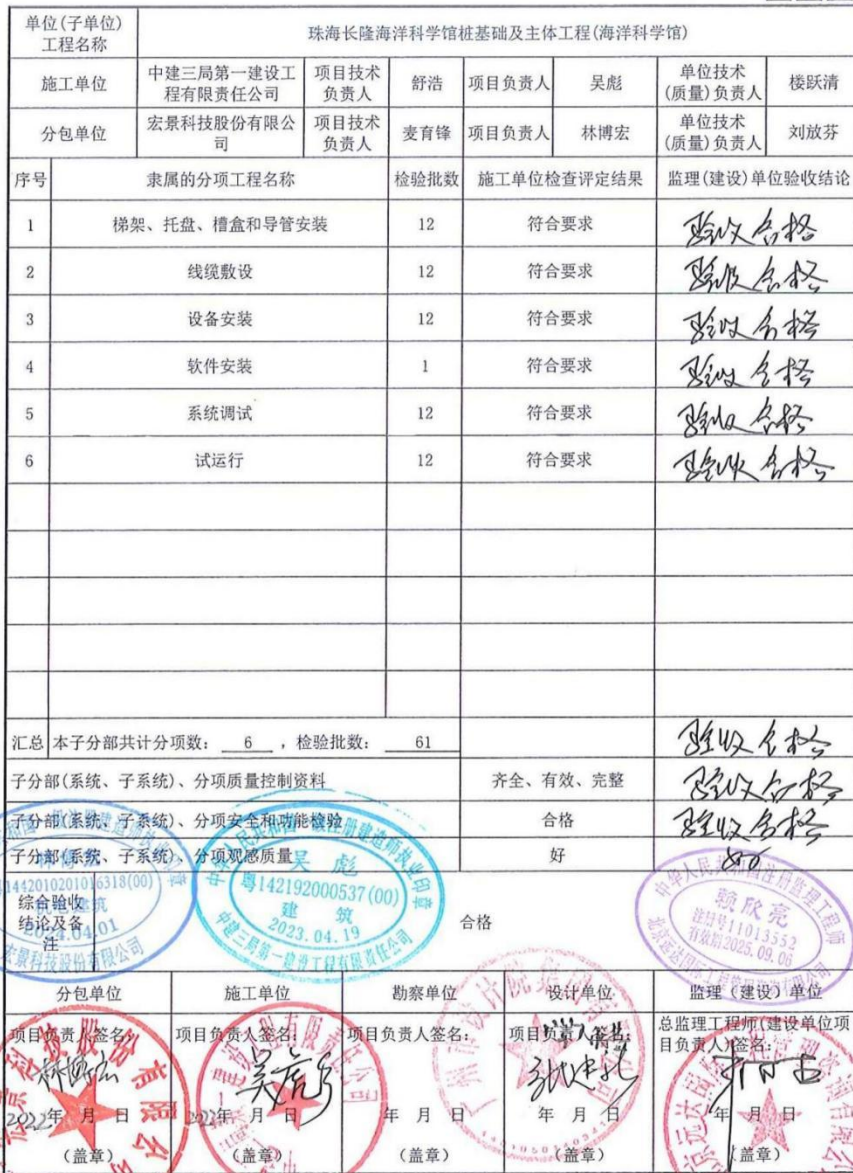 单位(子单位)工程名称 珠海长隆海洋科学馆桩基础及主体工程(海洋科学馆)
施工单位 中建三局第一建设工程有限责任公司 项目技术负责人 舒浩 项目负责人 吴彪 单位技术(质量)负责人 楼跃清
分包单位 宏景科技股份有限公司 项目技术负责人 麦育锋 项目负责人 林博宏 单位技术(质量)负责人 刘放芬
序号 隶属的分项工程名称 检验批数 施工单位检查评定结果 监理(建设)单位验收结论
1 梯架、托盘、槽盒和导管安装 12 符合要求 验收合格
2 线缆敷设 12 符合要求 验收合格
3 设备安装 12 符合要求 验收合格
4 软件安装 1 符合要求 验收合格
5 系统调试 12 符合要求 验收合格
6 试运行 12 符合要求 验收合格
汇总 本子分部共计分项数: 6 ,检验批数: 61 验收合格
子分部(系统、子系统)、分项质量控制资料 齐全、有效、完整 验收合格
子分部(系统、子系统)、分项安全和功能检验 合格 验收合格
子分部(系统、子系统)、分项观感质量 好
综合验收结论及备注 合格
吴彪
粤142192000537(00)
建筑
2023.04.19
中建三局第一建设工程有限责任公司
2024.04.01
宏景科技股份有限公司
中华人民共和国注册监理工程师
赖欣亮
注册号11013552
有效期2025.09.06
分包单位 施工单位 勘察单位 设计单位 监理(建设)单位
项目负责人签名: 项目负责人签名: 项目负责人签名: 项目负责人签名: 总监理工程师(建设单位项目负责人)签名:
林博宏 吴彪
2022年 月 日 2022年 月 日 年 月 日 年 月 日 年 月 日
(盖章) (盖章) (盖章) (盖章) (盖章)